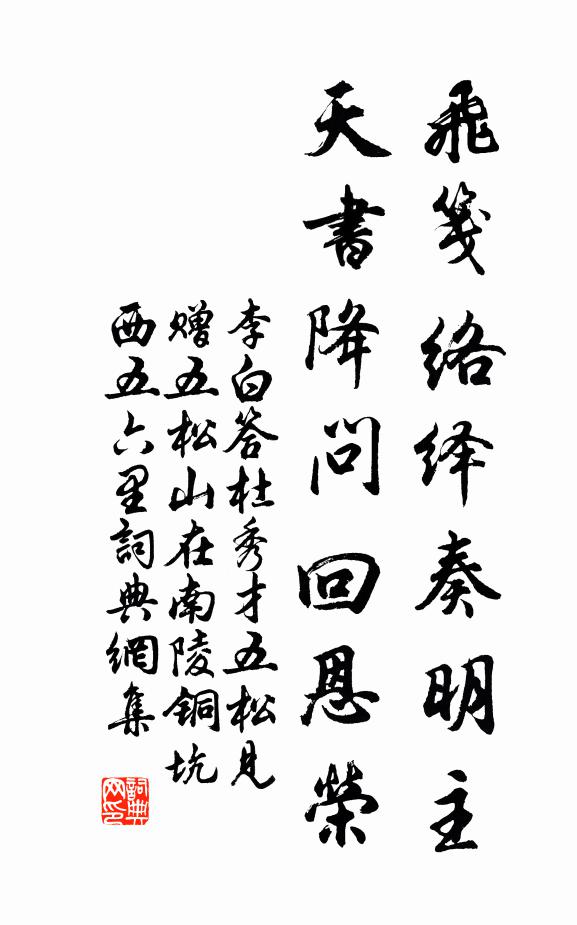 飛箋络绎奏明主
天書降問回恩榮
李白答杜秀才五松見
赠五松山在南陵銅坑
西五六里詞典網集
詞典
网印